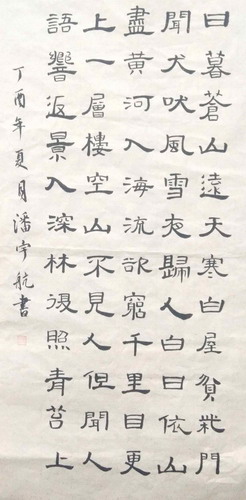 日暮蒼山遠天寒白屋貧柴門
聞犬吠風雪夜歸人白日依山
盡黃河入海流欲窮千里目更
上一層樓空山不見人但聞人
語響返景入深林復照青苔上
丁酉年夏月潘宇航書